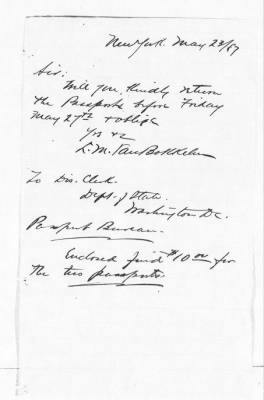 New York. May 23/87
Sir:
Will you kindly return
the Passports before Friday
May 27th & oblige
Yrs &c
L.M. Van Bokkelen
To Dis. Clerk.
Dept. of State.
Washington D.C.
Passport Bureau.
Enclosed find $10 00 for
the two passports.